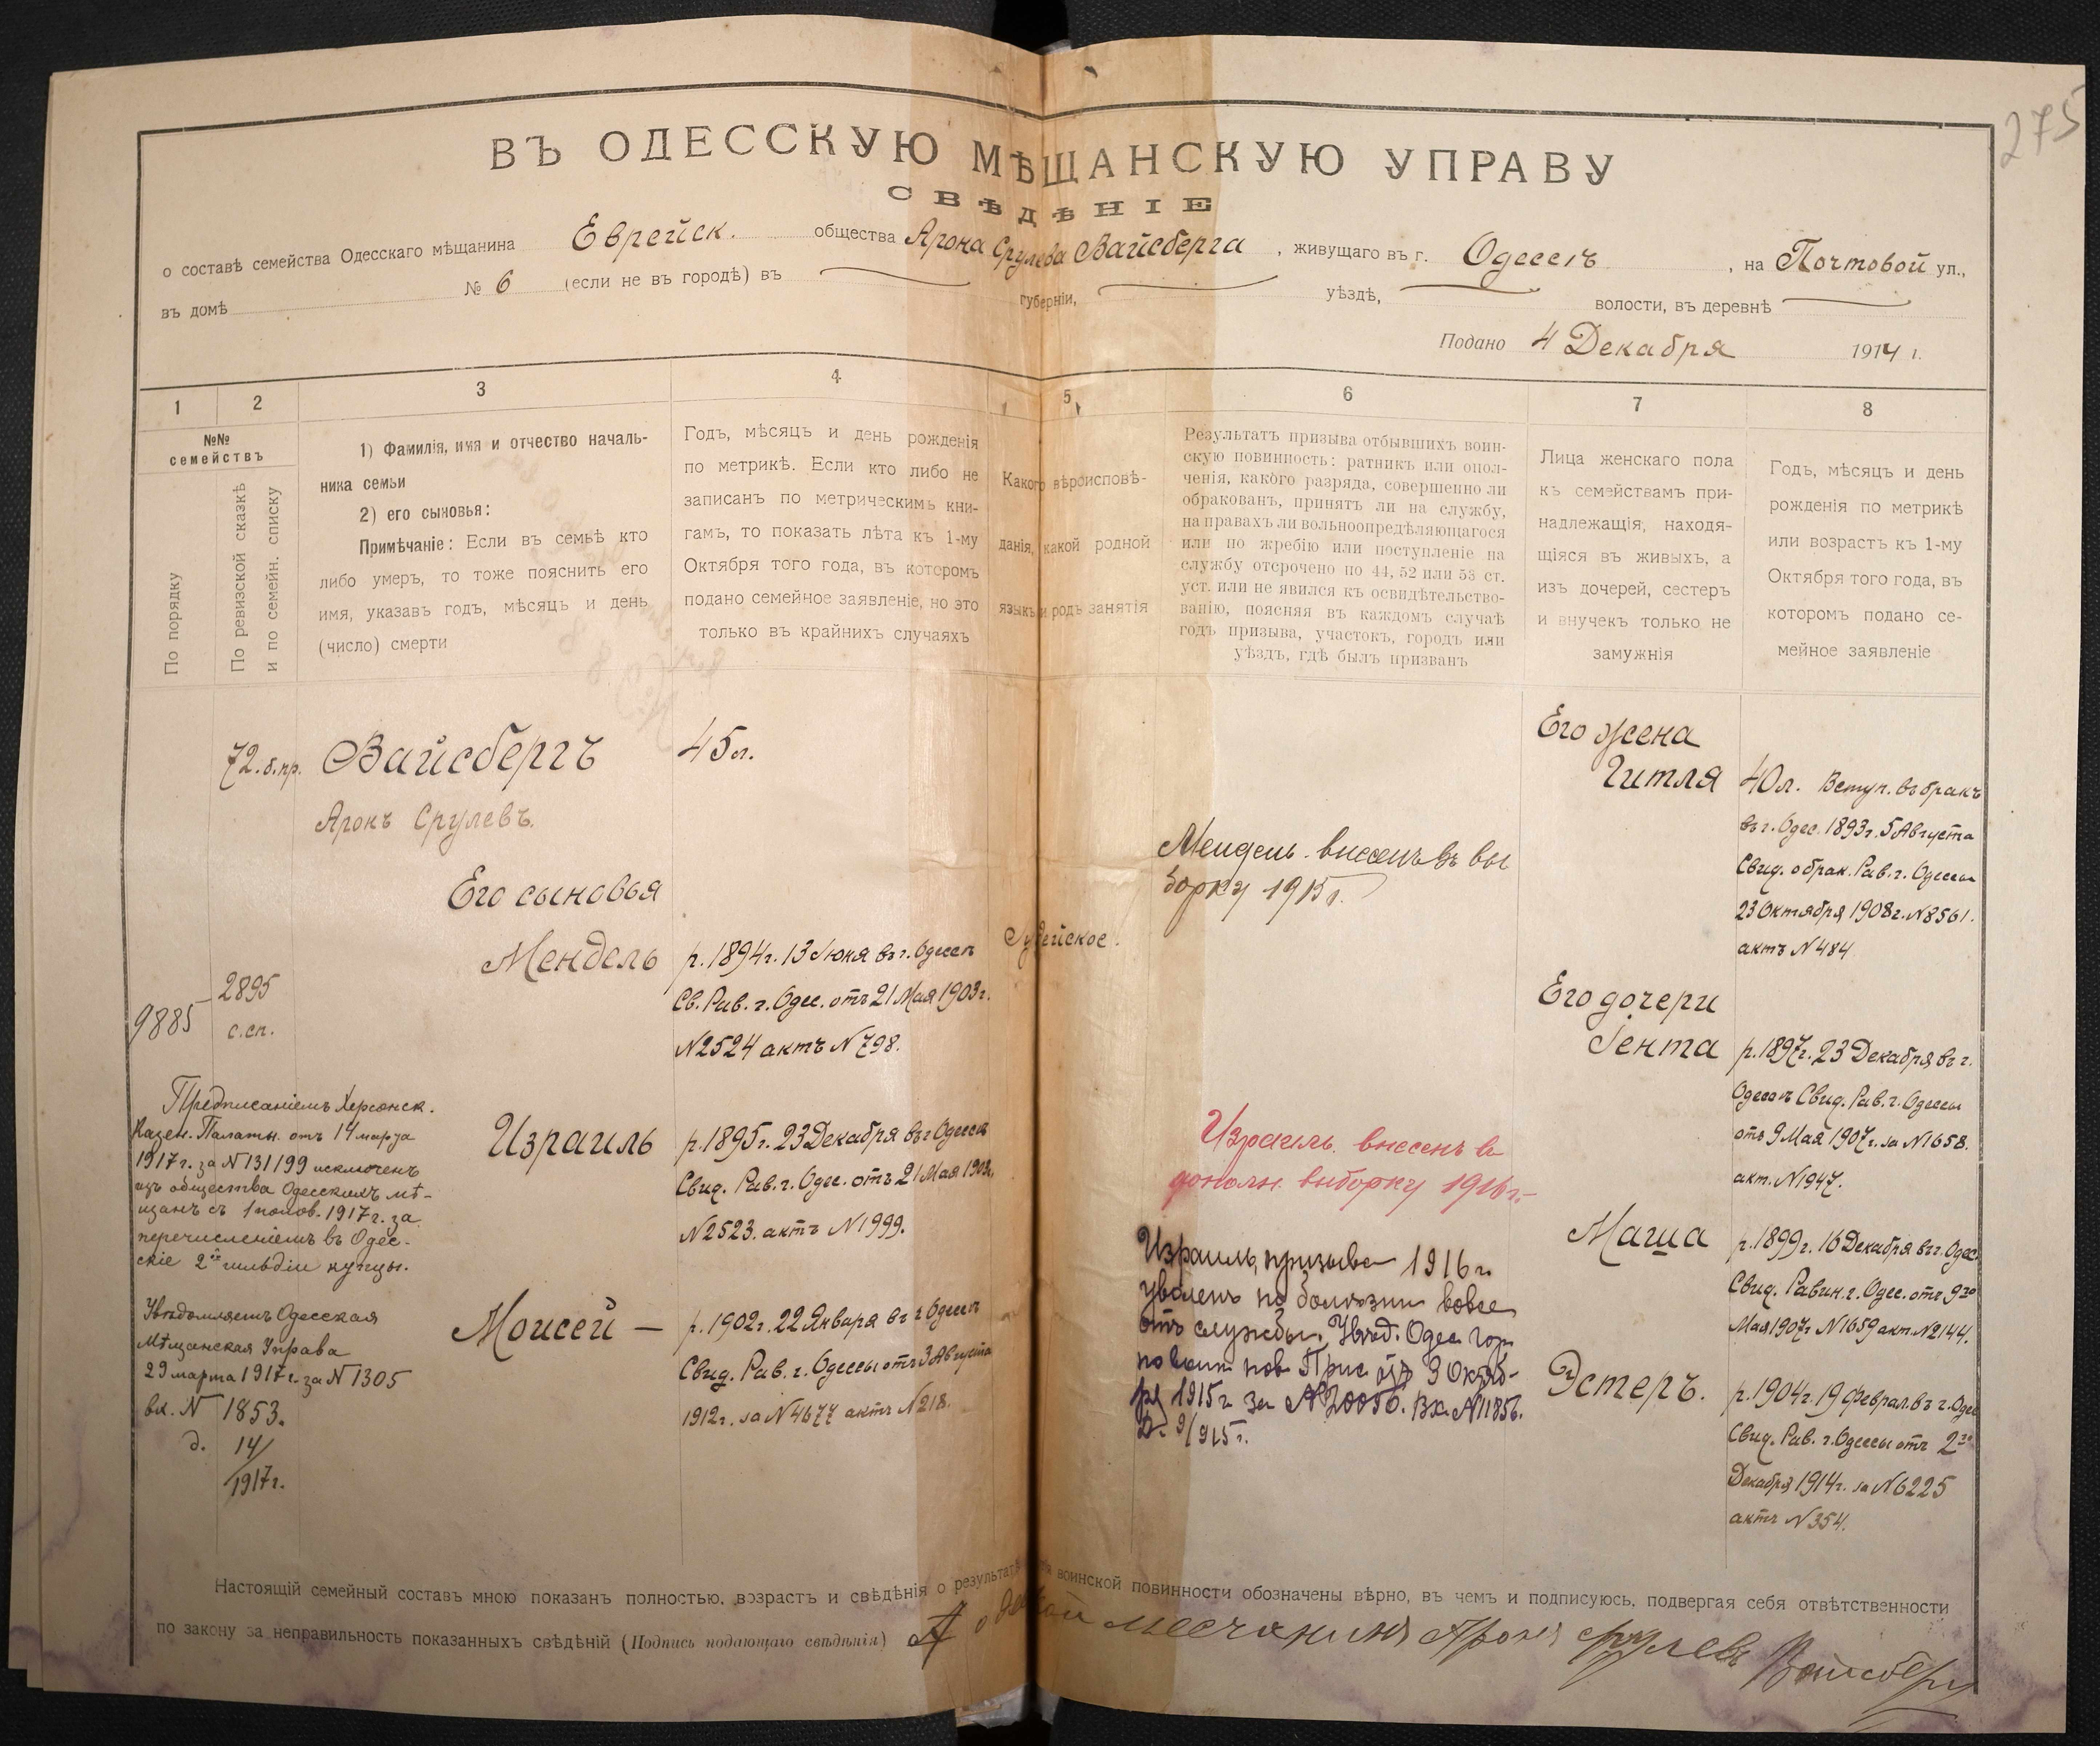 275
ВЪ ОДЕССКУЮ МѢЩАНСКУЮ УПРАВУ
СВѢДѢНІЕ
о составѣ семейства Одесскаго мѣщанина Еврейск. общества Арона Срулева Вайсберга, живущаго въ г. Одессѣ, на Почтовой ул.,
въ домѣ № 6 (если не въ городѣ) въ губерніи, уѣздѣ, волости, въ деревнѣ
Подано 4 Декабря 1914 г.
1
2
3
4
5
6
7
8
№№
семействъ
По порядку
По ревизской сказкѣ
и по семейн. списку
1) Фамилія, имя и отчество началь-
ника семьи
2) его сыновья:
Примѣчаніе: Если въ семьѣ кто
либо умеръ, то тоже пояснить его
имя, указавъ годъ, мѣсяцъ и день
(число) смерти
Годъ, мѣсяцъ и день рожденія
по метрикѣ. Если кто либо не
записанъ по метрическимъ кни-
гамъ, то показать лѣта къ 1-му
Октября того года, въ которомъ
подано семейное заявленіе, но это
только въ крайнихъ случаяхъ
Какого вѣроисповѣ-
данія, какой родной
языкъ и родъ занятія
Результатъ призыва отбывшихъ воин-
скую повинность: ратникъ или опол-
ченія, какого разряда, совершенно ли
обракованъ, принятъ ли на службу,
на правахъ ли вольноопредѣляющагося
или по жребію или поступленіе на
службу отсрочено по 44, 52 или 53 ст.
уст. или не явился къ освидѣтельство-
ванію, поясняя въ каждомъ случаѣ
годъ призыва, участокъ, городъ или
уѣздъ, гдѣ былъ призванъ
Лица женскаго пола
къ семействамъ при-
надлежащія, находя-
щіяся въ живыхъ, а
изъ дочерей, сестеръ
и внучекъ только не
замужнія
Годъ, мѣсяцъ и день
рожденія по метрикѣ
или возрастъ къ 1-му
Октября того года, въ
которомъ подано се-
мейное заявленіе
72.б.пр.
2895
с.сп.
9885
Предписаніемъ Херсонск.
Казен. Палаты отъ 14 марта
1917 г. за N 131199 исключенъ
изъ общества Одесскихъ мѣ-
щанъ съ 1 полов. 1917 г. за
перечисленіемъ въ Одес-
скіе 2ой гильдіи купцы.
Увѣдомляетъ Одесская
Мѣщанская Управа
29 марта 1917 г. за N 1305
вх. N 1853.
д. 14/
1917 г.
Вайсбергъ
Аронъ Срулевъ.
Его сыновья
Мендель
Израиль
Моисей —
45 л.
р. 1894 г. 13 Іюня въ г. Одессѣ
Св. Рав. г. Одес. отъ 21 Мая 1903 г.
N 2524 актъ N 798.
р. 1895 г. 23 Декабря въ г Одессѣ
Свид. Рав. г. Одес. отъ 21 Мая 1903 г.
N 2523. актъ N 1999.
р. 1902 г. 22 Января въ г Одессѣ
Свид. Рав. г. Одессы отъ 3 Августа
1912 г. за N 4677 актъ N 218.
Іудейское.
Мендель внесенъ въ вы
борку 1915 г.
Израиль внесенъ въ
дополн. выборку 1916 г.
Израиль, призыва 1916 г.
уволенъ по болѣзни вовсе
отъ службы. Увѣд. Одес. гор.
по воин. пов. Прис. отъ 3 Октяб-
ря 1915 г. за N 20056. Вх. N 11856.
9/915 г.
Его жена
Гитля
Его дочери
Іента
Маша
Эстеръ.
40 л. Вступ. въ бракъ
въ г. Одес. 1893 г. 5 Августа
Свид. о брак. Рав. г. Одессы
23 Октября 1908 г. N 8561.
актъ N 484
р. 1897 г. 23 Декабря въ г.
Одессѣ Свид. Рав. г. Одессы
отъ 9 Мая 1907 г. за N 1658.
акт. N 1947.
р. 1899 г. 16 Декабря въ г. Одес.
Свид. Равин. г. Одес. отъ 9го
Мая 1907 г N 1659 акт. N 2144.
р. 1904 г. 19 Феврал. въ г. Одес
Свид. Рав. г. Одессы отъ 2го
Декабря 1914 г. за N 6225
актъ N 354.
Настоящій семейный составъ мною показанъ полностью, возрастъ и свѣдѣнія о результатѣ воинской повинности обозначены вѣрно, въ чемъ и подписуюсь, подвергая себя отвѣтственности
по закону за неправильность показанныхъ свѣдѣній (Подпись подающаго свѣдѣнія) месчанинъ Аронъ Срулевъ Вайсберг